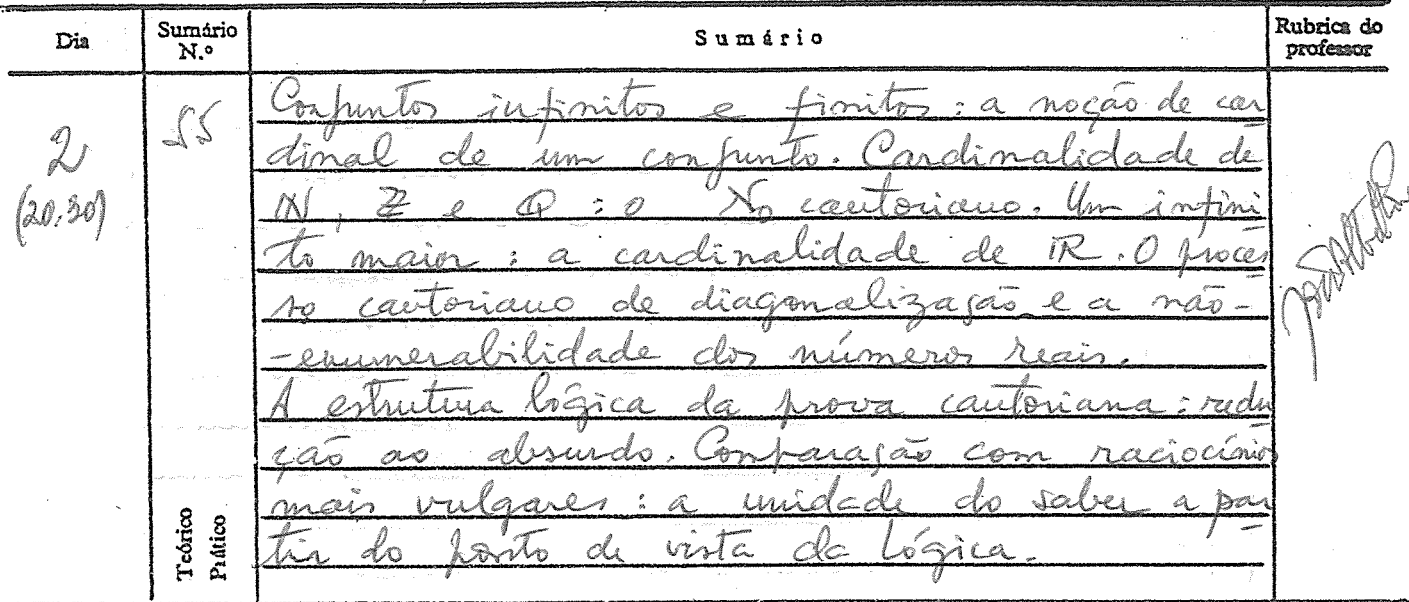 Dia
Sumário N.º
Sumário
Rubrica do professor
2
(20.30)
55
Conjuntos infinitos e finitos : a noção de car
dinal de um conjunto. Cardinalidade de
ℕ, ℤ e ℚ : o ℵ₀ cantoriano. Um infini
to maior : a cardinalidade de ℝ. O proces
so cantoriano de diagonalização e a não-
-enumerabilidade dos números reais.
A estrutura lógica da prova cantoriana : redu
ção ao absurdo. Comparação com raciocínios
mais vulgares : a unidade do saber a par
tir do ponto de vista da lógica.
Teórico
Prático